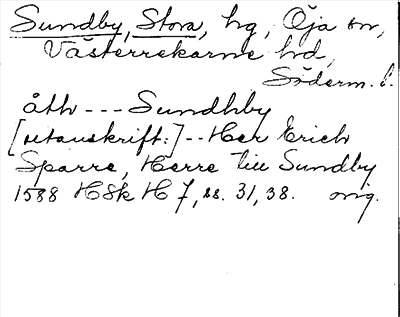 Sundby, Stora, hg, Öja sn,
Västerrekarne hd,
Söderm. l.
åth --- Sundhby
[utanskrift:] -- Her Erich
Sparre, Herre till Sundby
1588 HSk H 7, ss. 31, 38. orig.